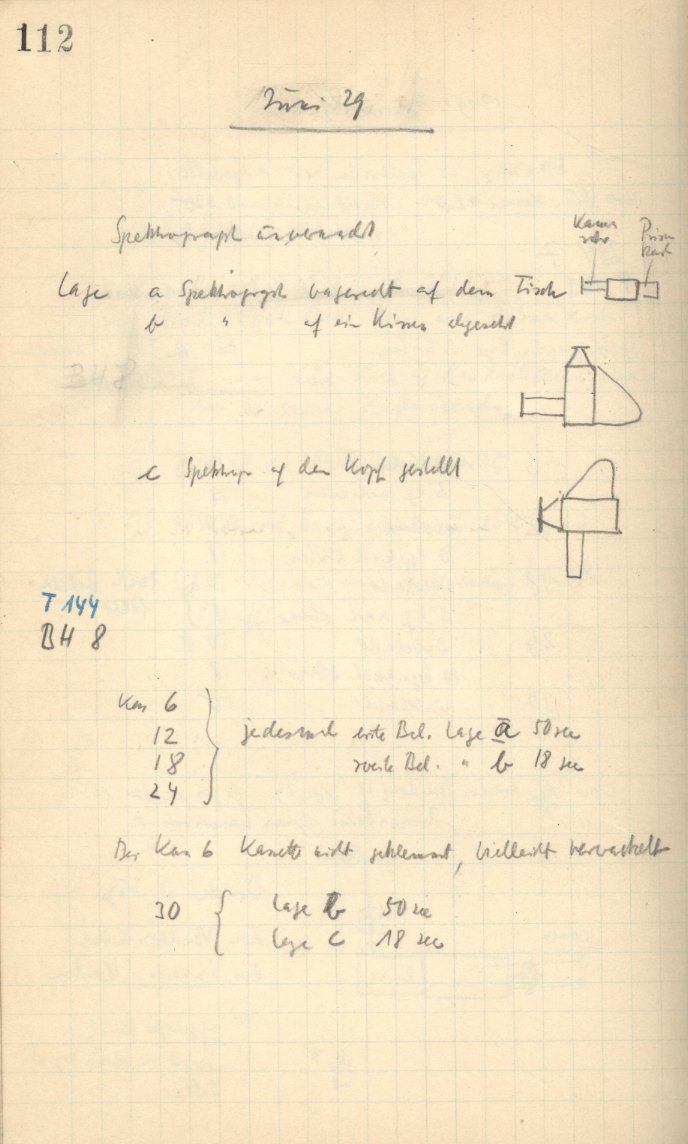 112
Juni 29
Spektrograph unvernackt
Kam
rohr
Prism
Kast
Lage a Spektrograph wagerecht auf dem Tisch
b " auf ein Kissen abgesenkt
BH 8
c Spektrogr auf den Kopf gestellt
T 144
BH 8
Kam 6
12
18
24
jedesmal erste Bel. Lage a 50 sec
zweite Bel. " b 18 sec
Bei Kam 6 Kassette nicht geklemmt, vielleicht verwackelt
30
Lage b 50 sec
Lage c 18 sec